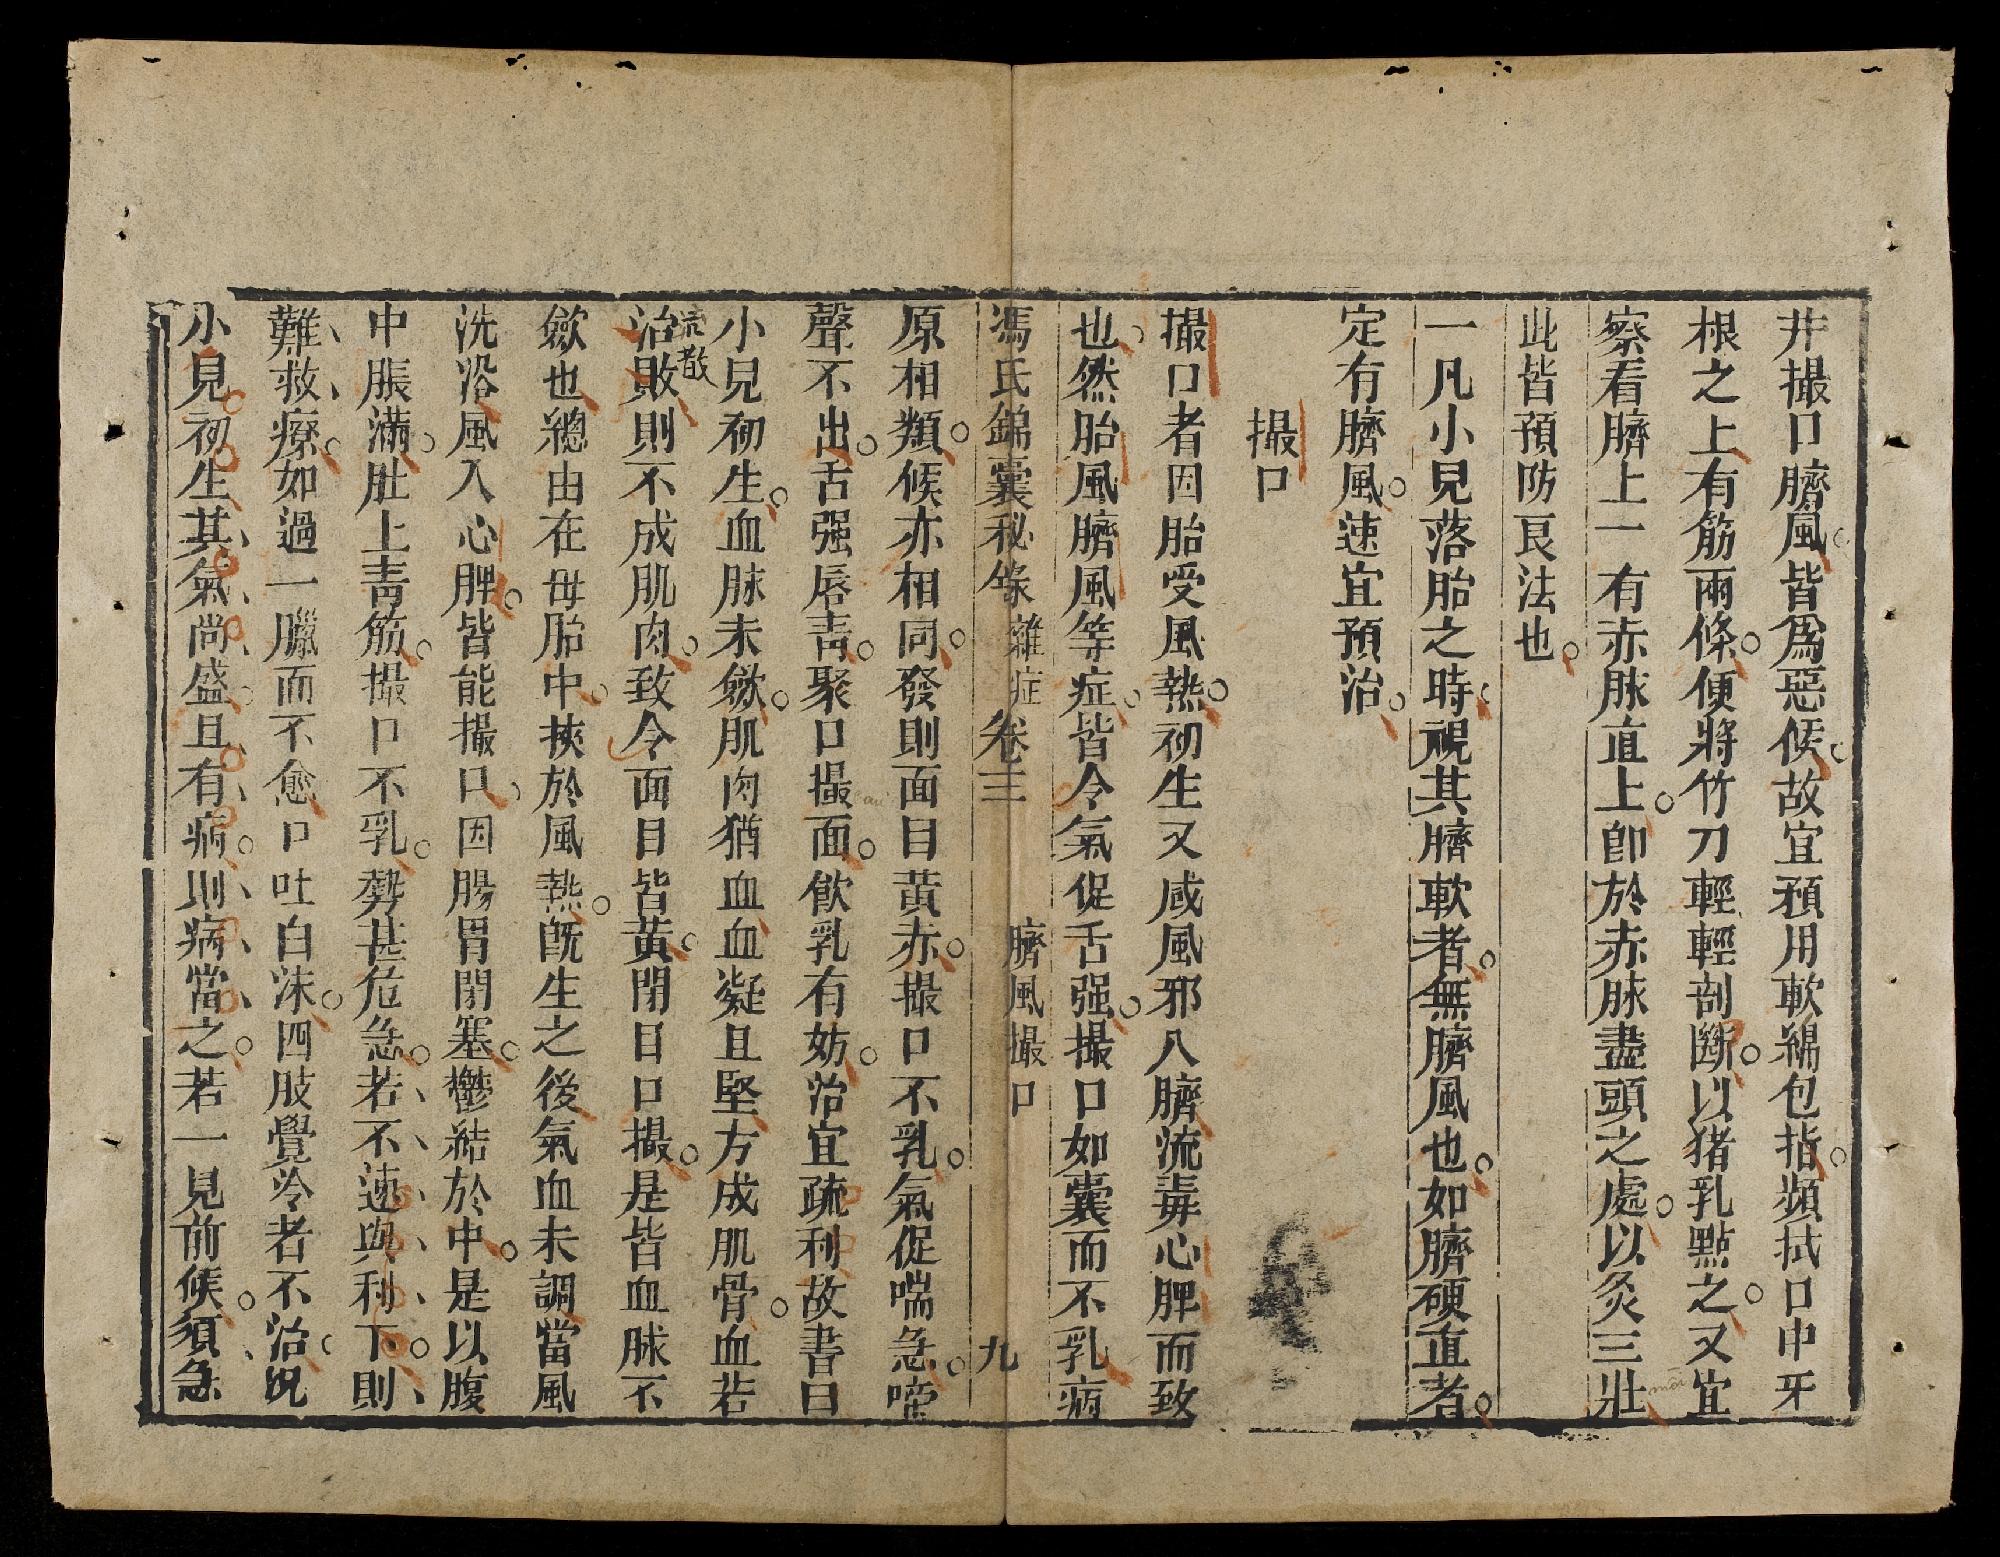 并撮口臍風皆爲惡候故宜預用軟綿包指頻拭口中牙
根之上有筋兩條便將竹刀輕輕剖斷以猪乳點之又宜
察看臍上一有赤脉直上卽於赤脉盡頭之處以灸三壯
此皆預防良法也
一凡小兒落胎之時視其臍軟者無臍風也如臍硬直者
定有臍風速宜預治
撮口
撮口者因胎受風熱初生又咸風邪入臍流毒心脾而致
也然胎風臍風等症皆令氣促舌强撮口如囊而不乳病
馮氏錦囊秘錄 雜症 卷三 臍風撮口 九
原相類候亦相同發則面目黃赤撮口不乳氣促喘急啼
聲不出舌强唇靑聚口撮面飮乳有妨治宜疏利故書曰
小兒初生血脉未斂肌肉猶血血凝且堅方成肌骨血若
治敗則不成肌肉致令面目皆黃閉目口撮是皆血脉不
流散
斂也總由在母胎中挾於風熱旣生之後氣血未調當風
洗浴風入心脾皆能撮口因腸胃閉塞鬱結於中是以腹
中脹滿肚上靑筋撮口不乳勢甚危急若不速與利下則
難救療如過一臘而不愈口吐白沫四肢覺冷者不治况
小兒初生其氣尚盛且有病則病當之若一見前候須急